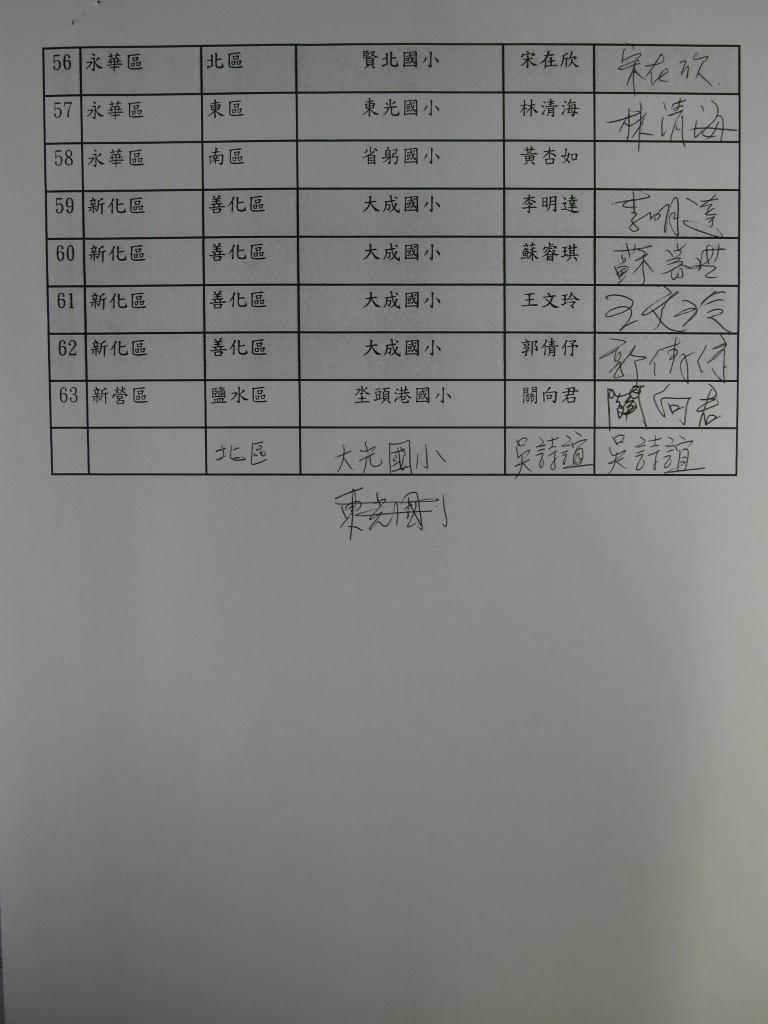 56 永華區 北區 賢北國小 宋在欣 宋在欣
57 永華區 東區 東光國小 林清海 林清海
58 永華區 南區 省躬國小 黃杏如
59 新化區 善化區 大成國小 李明達 李明達
60 新化區 善化區 大成國小 蘇睿琪 蘇
61 新化區 善化區 大成國小 王文玲 王文玲
62 新化區 善化區 大成國小 郭倩伃 郭倩伃
63 新營區 鹽水區 坔頭港國小 關向君 關向君
北區 大光國小 吳詩誼 吳詩誼
東光國小